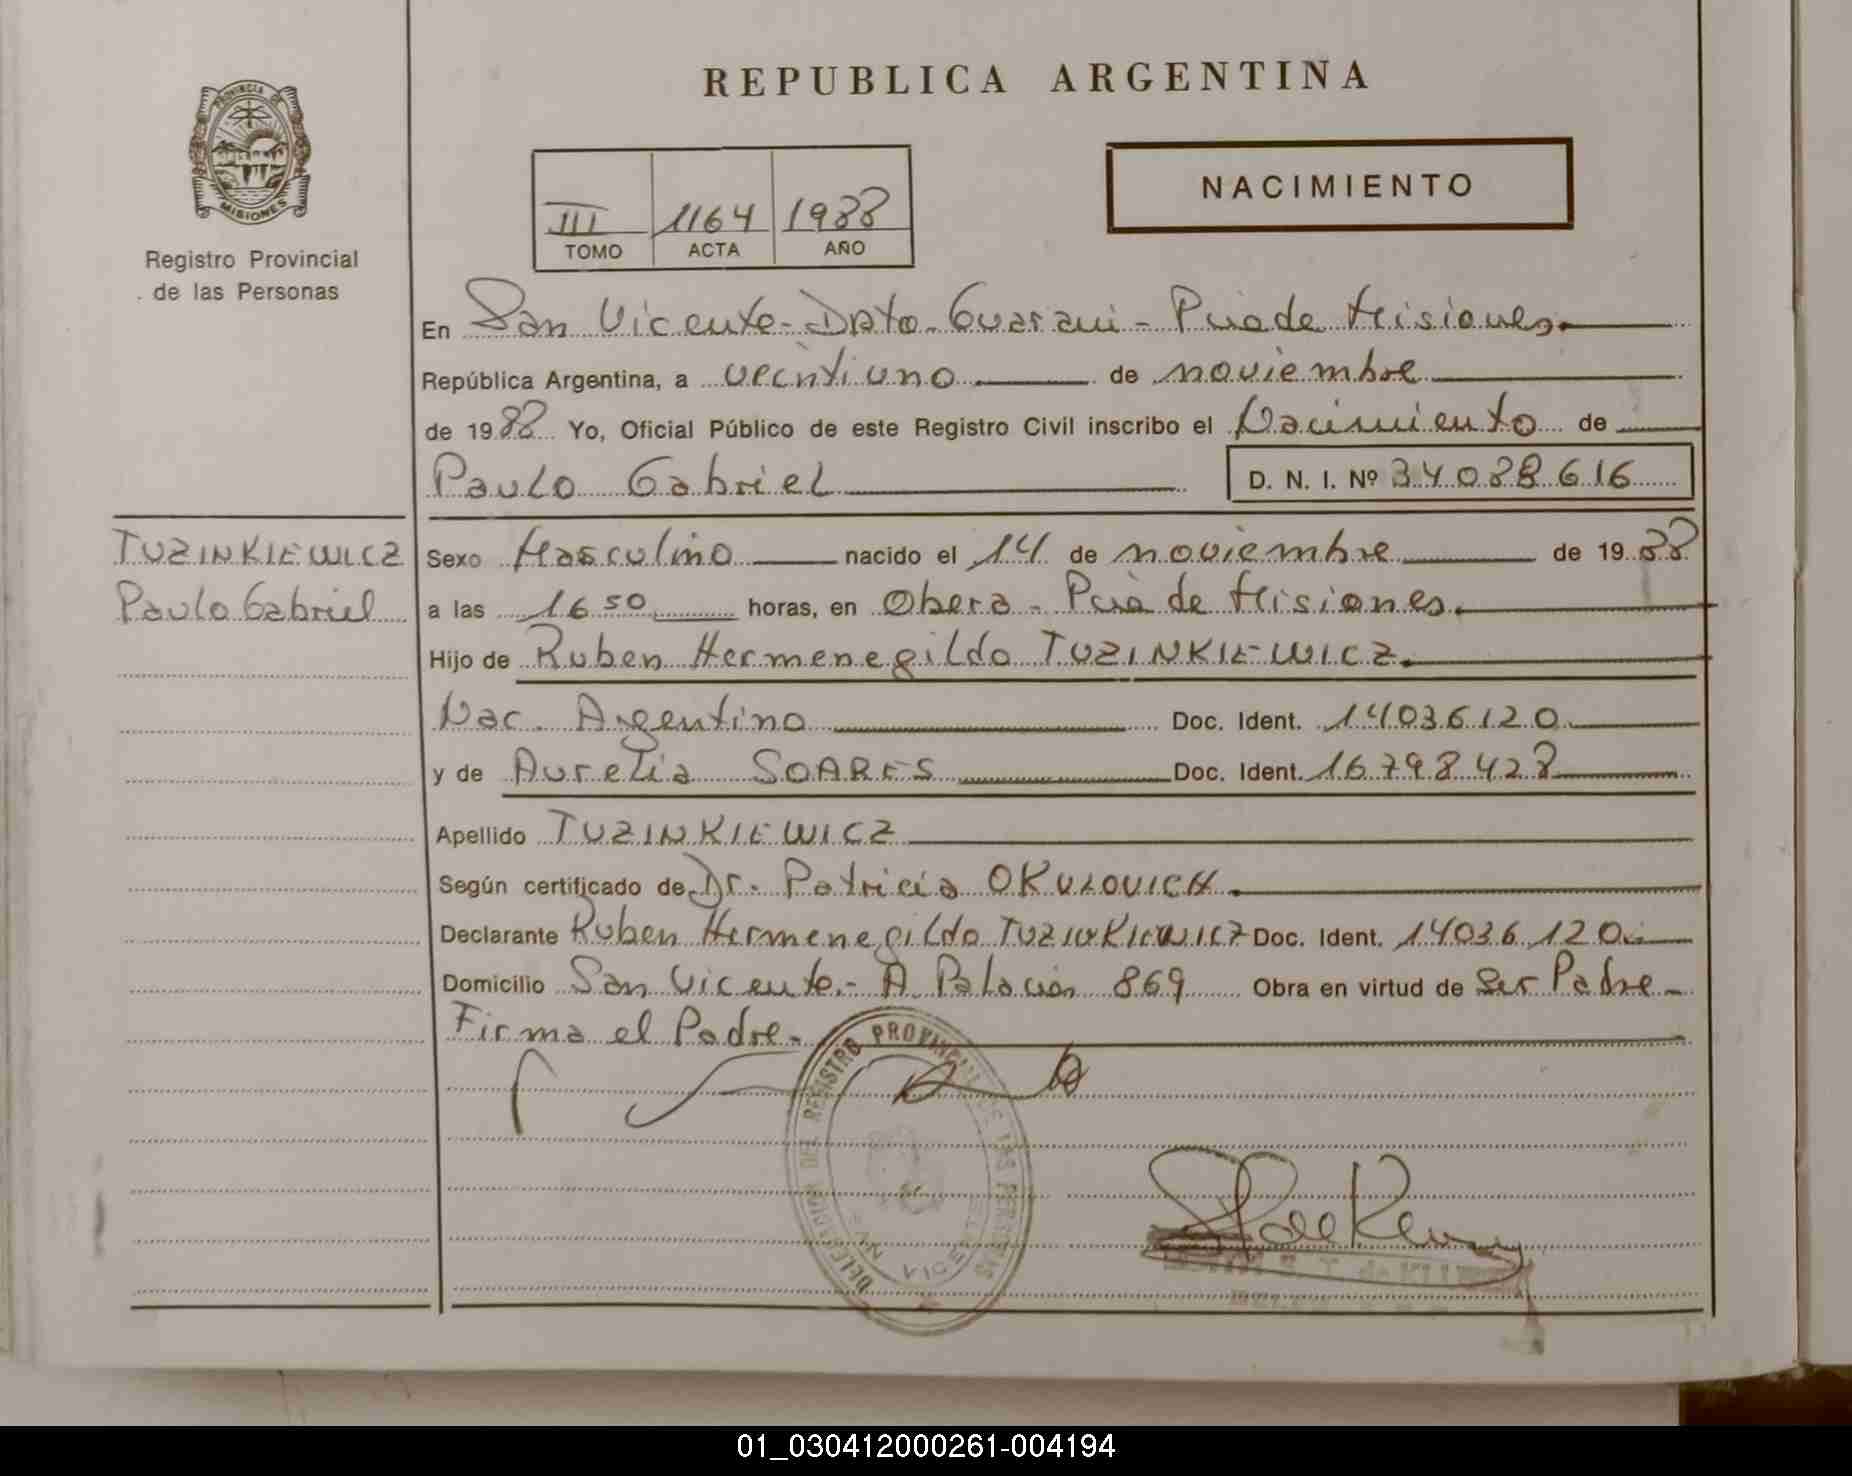 REPUBLICA ARGENTINA
PROVINCIA DE
MISIONES
Registro Provincial
de las Personas
III 1164 1988
TOMO ACTA AÑO
NACIMIENTO
En San Vicente - Dpto. Guarani - Pcia de Misiones.
República Argentina, a veintiuno de noviembre
de 1988 Yo, Oficial Público de este Registro Civil inscribo el Nacimiento de
Paulo Gabriel D. N. I. Nº 34088616
TUZINKIEWICZ
Paulo Gabriel
Sexo Masculino nacido el 14 de noviembre de 1988
a las 16 50 horas, en Obera - Pcia de Misiones.
Hijo de Ruben Hermenegildo TUZINKIEWICZ.
Nac. Argentino Doc. Ident. 14036120
y de Aurelia SOARES Doc. Ident. 16798428
Apellido TUZINKIEWICZ
Según certificado de Dr. Patricia OKULOVICH.
Declarante Ruben Hermenegildo TUZINKIEWICZ Doc. Ident. 14036120
Domicilio San Vicente.- A. Palacios 869 Obra en virtud de Ser Padre -
Firma el Padre.-
DELEGACION DEL REGISTRO PROVINCIAL DE LAS PERSONAS
01_030412000261-004194